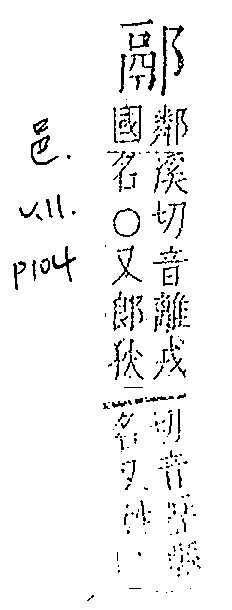 鄰溪切音離戎
國名○又郎狄
切音縣
名又
邑.
V.11.
P104